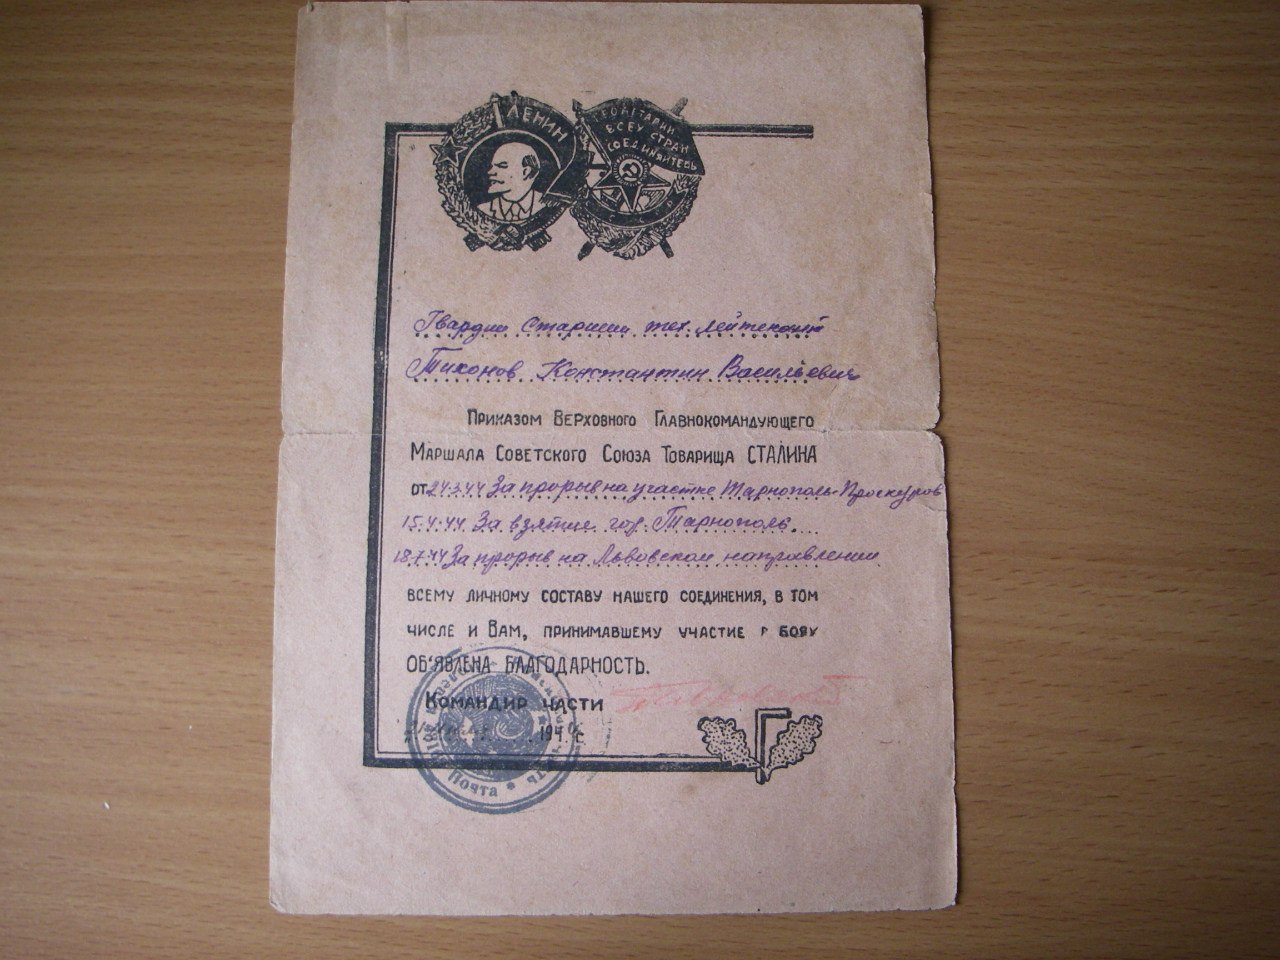 ЛЕНИН
ПРОЛЕТАРИИ
ВСЕХ СТРАН
СОЕДИНЯЙТЕСЬ
Гвардии Старший тех. лейтенант
Тихонов Константин Васильевич
Приказом Верховного Главнокомандующего
Маршала Советского Союза Товарища СТАЛИНА
от 24.3.44 За прорыв на участке Тарнополь-Проскуров
15.4.44 За взятие гор. Тарнополь
18.7.44 За прорыв на Львовском направлении
всему личному составу нашего соединения, в том
числе и Вам, принимавшему участие в боях
объявлена БЛАГОДАРНОСТЬ.
Командир части
194 г.
Почта